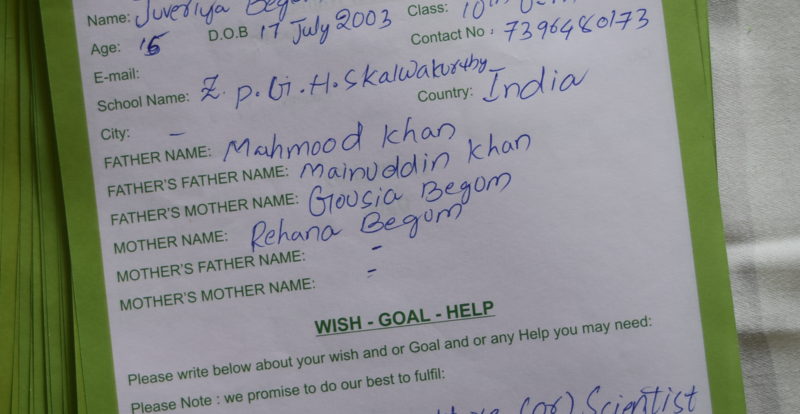 Name: Juveriya Class: 10th
Age: 15 D.O.B 17 July 2003 Contact No: 7396480173
E-mail:
School Name: Z.P.G.H.S Kalwakurthy
City: - Country: India
FATHER NAME: Mahmood Khan
FATHER'S FATHER NAME: Mainuddin Khan
FATHER'S MOTHER NAME: Gousia Begum
MOTHER NAME: Rehana Begum
MOTHER'S FATHER NAME: -
MOTHER'S MOTHER NAME: -
WISH - GOAL - HELP
Please write below about your wish and or Goal and or any Help you may need:
Please Note : we promise to do our best to fulfil:
(or) Scientist